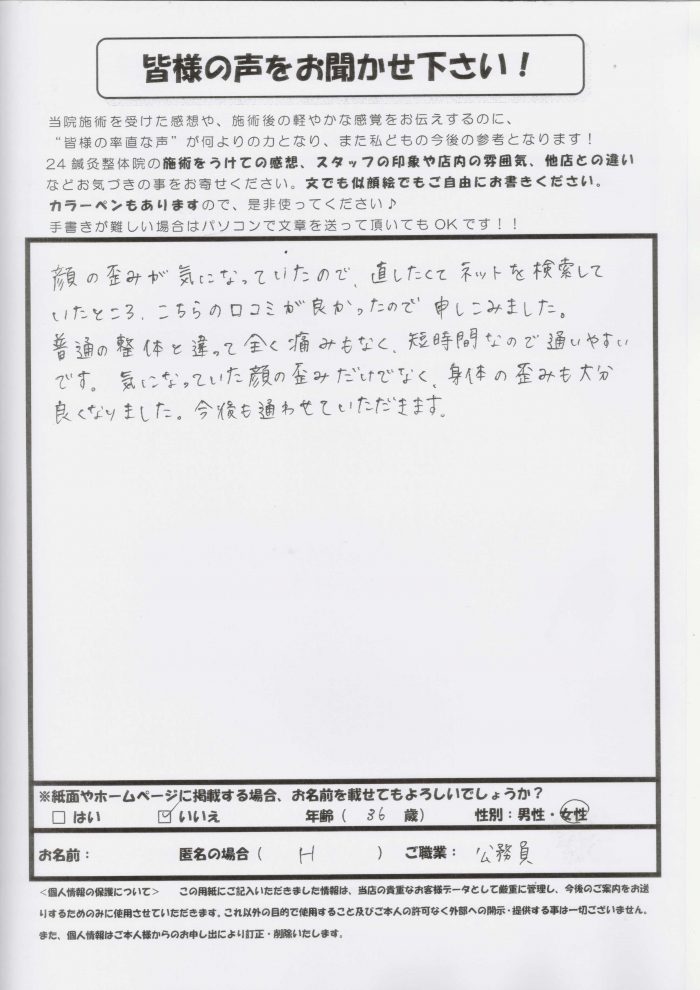 皆様の声をお聞かせ下さい！
当院施術を受けた感想や、施術後の軽やかな感覚をお伝えするのに、
“皆様の率直な声”が何よりの力となり、また私どもの今後の参考となります！
24鍼灸整体院の施術をうけての感想、スタッフの印象や店内の雰囲気、他店との違い
などお気づきの事をお寄せください。文でも似顔絵でもご自由にお書きください。
カラーペンもありますので、是非使ってください♪
手書きが難しい場合はパソコンで文章を送って頂いてもOKです！！
顔の歪みが気になっていたので、直したくてネットを検索して
いたところ、こちらの口コミが良かったので申しこみました。
普通の整体と違って全く痛みもなく、短時間なので通いやすい
です。気になっていた顔の歪みだけでなく、身体の歪みも大分
良くなりました。今後も通わせていただきます。
※紙面やホームページに掲載する場合、お名前を載せてもよろしいでしょうか？
□ はい ☑ いいえ 年齢（ 36 歳） 性別：男性・女性
お名前： 匿名の場合（ H ） ご職業： 公務員
＜個人情報の保護について＞ この用紙にご記入いただきました情報は、当店の貴重なお客様データとして厳重に管理し、今後のご案内をお送
りするためのみに使用させていただきます。これ以外の目的で使用すること及びご本人の許可なく外部への開示・提供する事は一切ございません。
また、個人情報はご本人様からのお申し出により訂正・削除いたします。